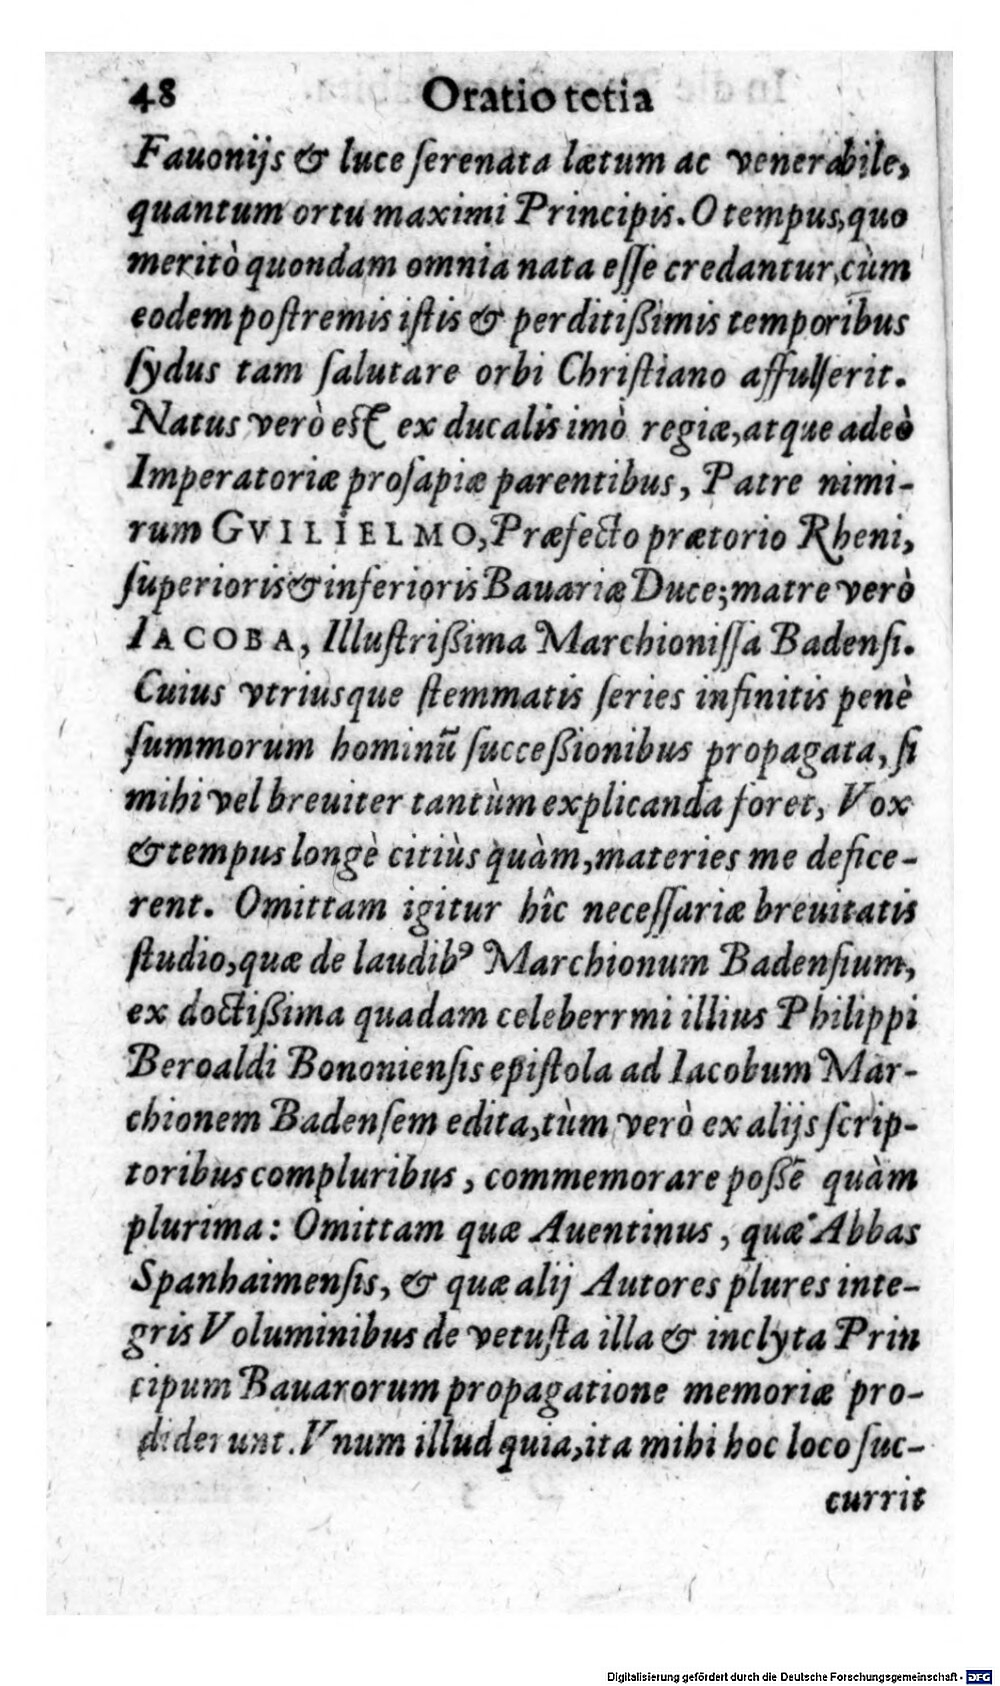 48 Oratio tetia
Fauonijs & luce ſerenata lætum ac venerabile,
quantum ortu maximi Principis. O tempus, quo
meritò quondam omnia nata eſſe credantur, cùm
eodem poſtremis iſtis & perditißimis temporibus
ſydus tam ſalutare orbi Chriſtiano affulſerit.
Natus verò eſt ex ducalis imò regiæ, atque adeò
Imperatoriæ proſapiæ parentibus, Patre nimi-
rum GVILIELMO, Præfecto prætorio Rheni,
ſuperioris & inferioris Bauariæ Duce; matre verò
IACOBA, Illuſtrißima Marchioniſſa Badenſi.
Cuius vtriusque ſtemmatis ſeries infinitis penè
ſummorum hominũ ſucceßionibus propagata, ſi
mihi vel breuiter tantùm explicanda foret, Vox
& tempus longè citiùs quàm, materies me defice-
rent. Omittam igitur hîc neceſſariæ breuitatis
ſtudio, quæ de laudibꝰ Marchionum Badenſium,
ex doctißima quadam celeberrmi illius Philippi
Beroaldi Bononienſis epiſtola ad Iacobum Mar-
chionem Badenſem edita, tùm verò ex alijs ſcrip-
toribus compluribus, commemorare poßẽ quàm
plurima: Omittam quæ Auentinus, quæ Abbas
Spanhaimenſis, & quæ alij Autores plures inte-
gris Voluminibus de vetuſta illa & inclyta Prin
cipum Bauarorum propagatione memoriæ pro-
diderunt. Vnum illud quia, ita mihi hoc loco ſuc-
currit
Digitalisierung gefördert durch die Deutsche Forschungsgemeinschaft - DFG